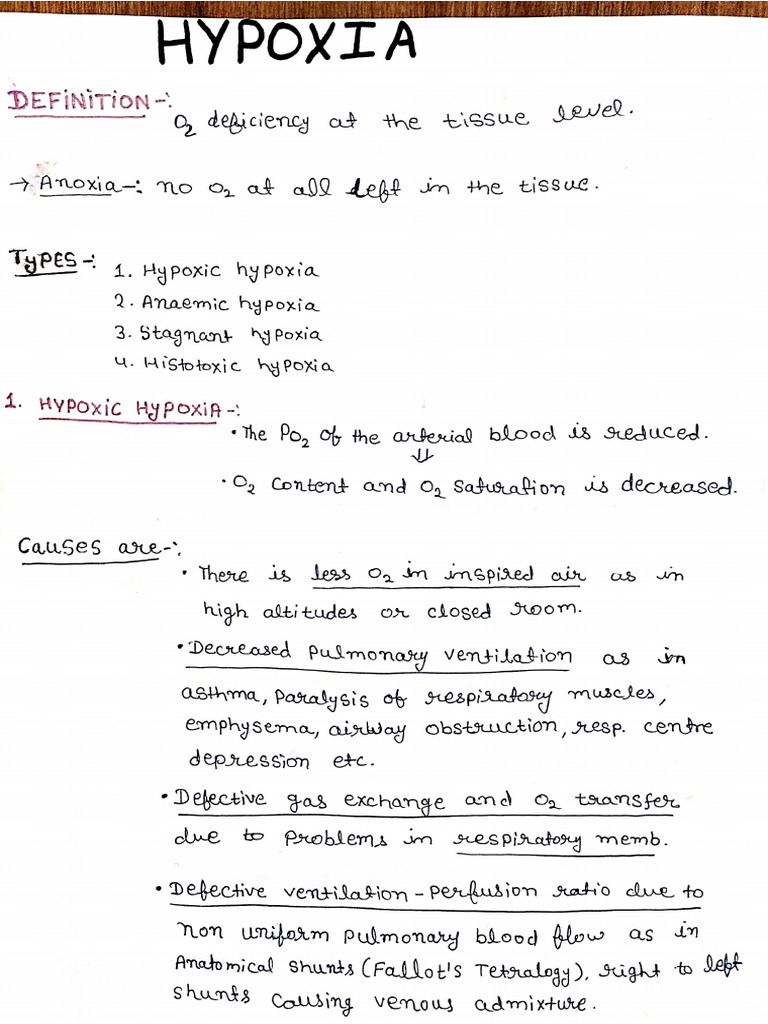 HYPOXIA
DEFINITION-:
O2 deficiency at the tissue level.
→ Anoxia-: no O2 at all left in the tissue.
TYPES-: 1. Hypoxic hypoxia
2. Anaemic hypoxia
3. Stagnant hypoxia
4. Histotoxic hypoxia
1. HYPOXIC HYPOXIA-:
• The PO2 of the arterial blood is reduced.
⇓
• O2 content and O2 saturation is decreased.
Causes are-:
• There is less O2 in inspired air as in
high altitudes or closed room.
• Decreased pulmonary ventilation as in
asthma, paralysis of respiratory muscles,
emphysema, airway obstruction, resp. centre
depression etc.
• Defective gas exchange and O2 transfer
due to problems in respiratory memb.
• Defective ventilation-perfusion ratio due to
non uniform pulmonary blood flow as in
Anatomical shunts (Fallot's Tetralogy), right to left
shunts causing venous admixture.